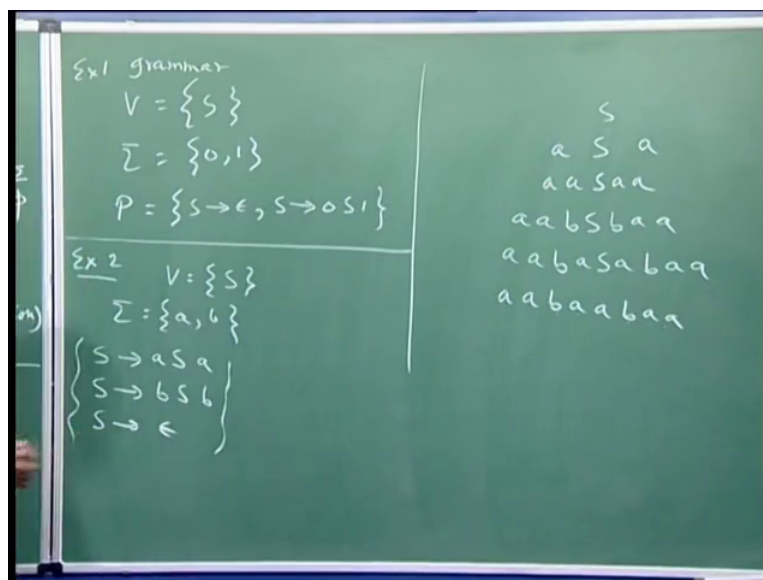 Ex1 grammar
V = {S}
Σ = {0,1}
P = {S→ϵ, S→0S1}
Ex 2 V = {S}
Σ = {a, b}
S → aSa
S → bSb
S → ϵ
S
a S a
aaSaa
aabSbaa
aabaSabaa
aabaabaa